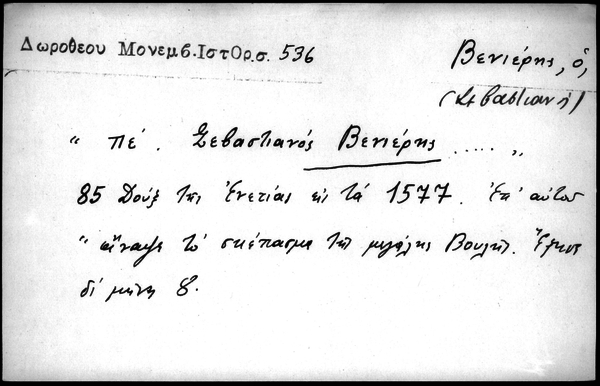 Δωροθεου Μονεμβ.Ιστορ.σ. 536
Βενιέρης, ὁ,
(Σεβαστιανὸς)
" πέ. Σεβαστιανός Βενιέρης ..... "
85 Δούξ τῆς Ἐνετίας εἰς τά 1577. Ἐπ' αὐτοῦ
" ἄναψε τό σκέπασμα τῆς μεγάλης Βουλῆς.
δέ μῆνες 8.